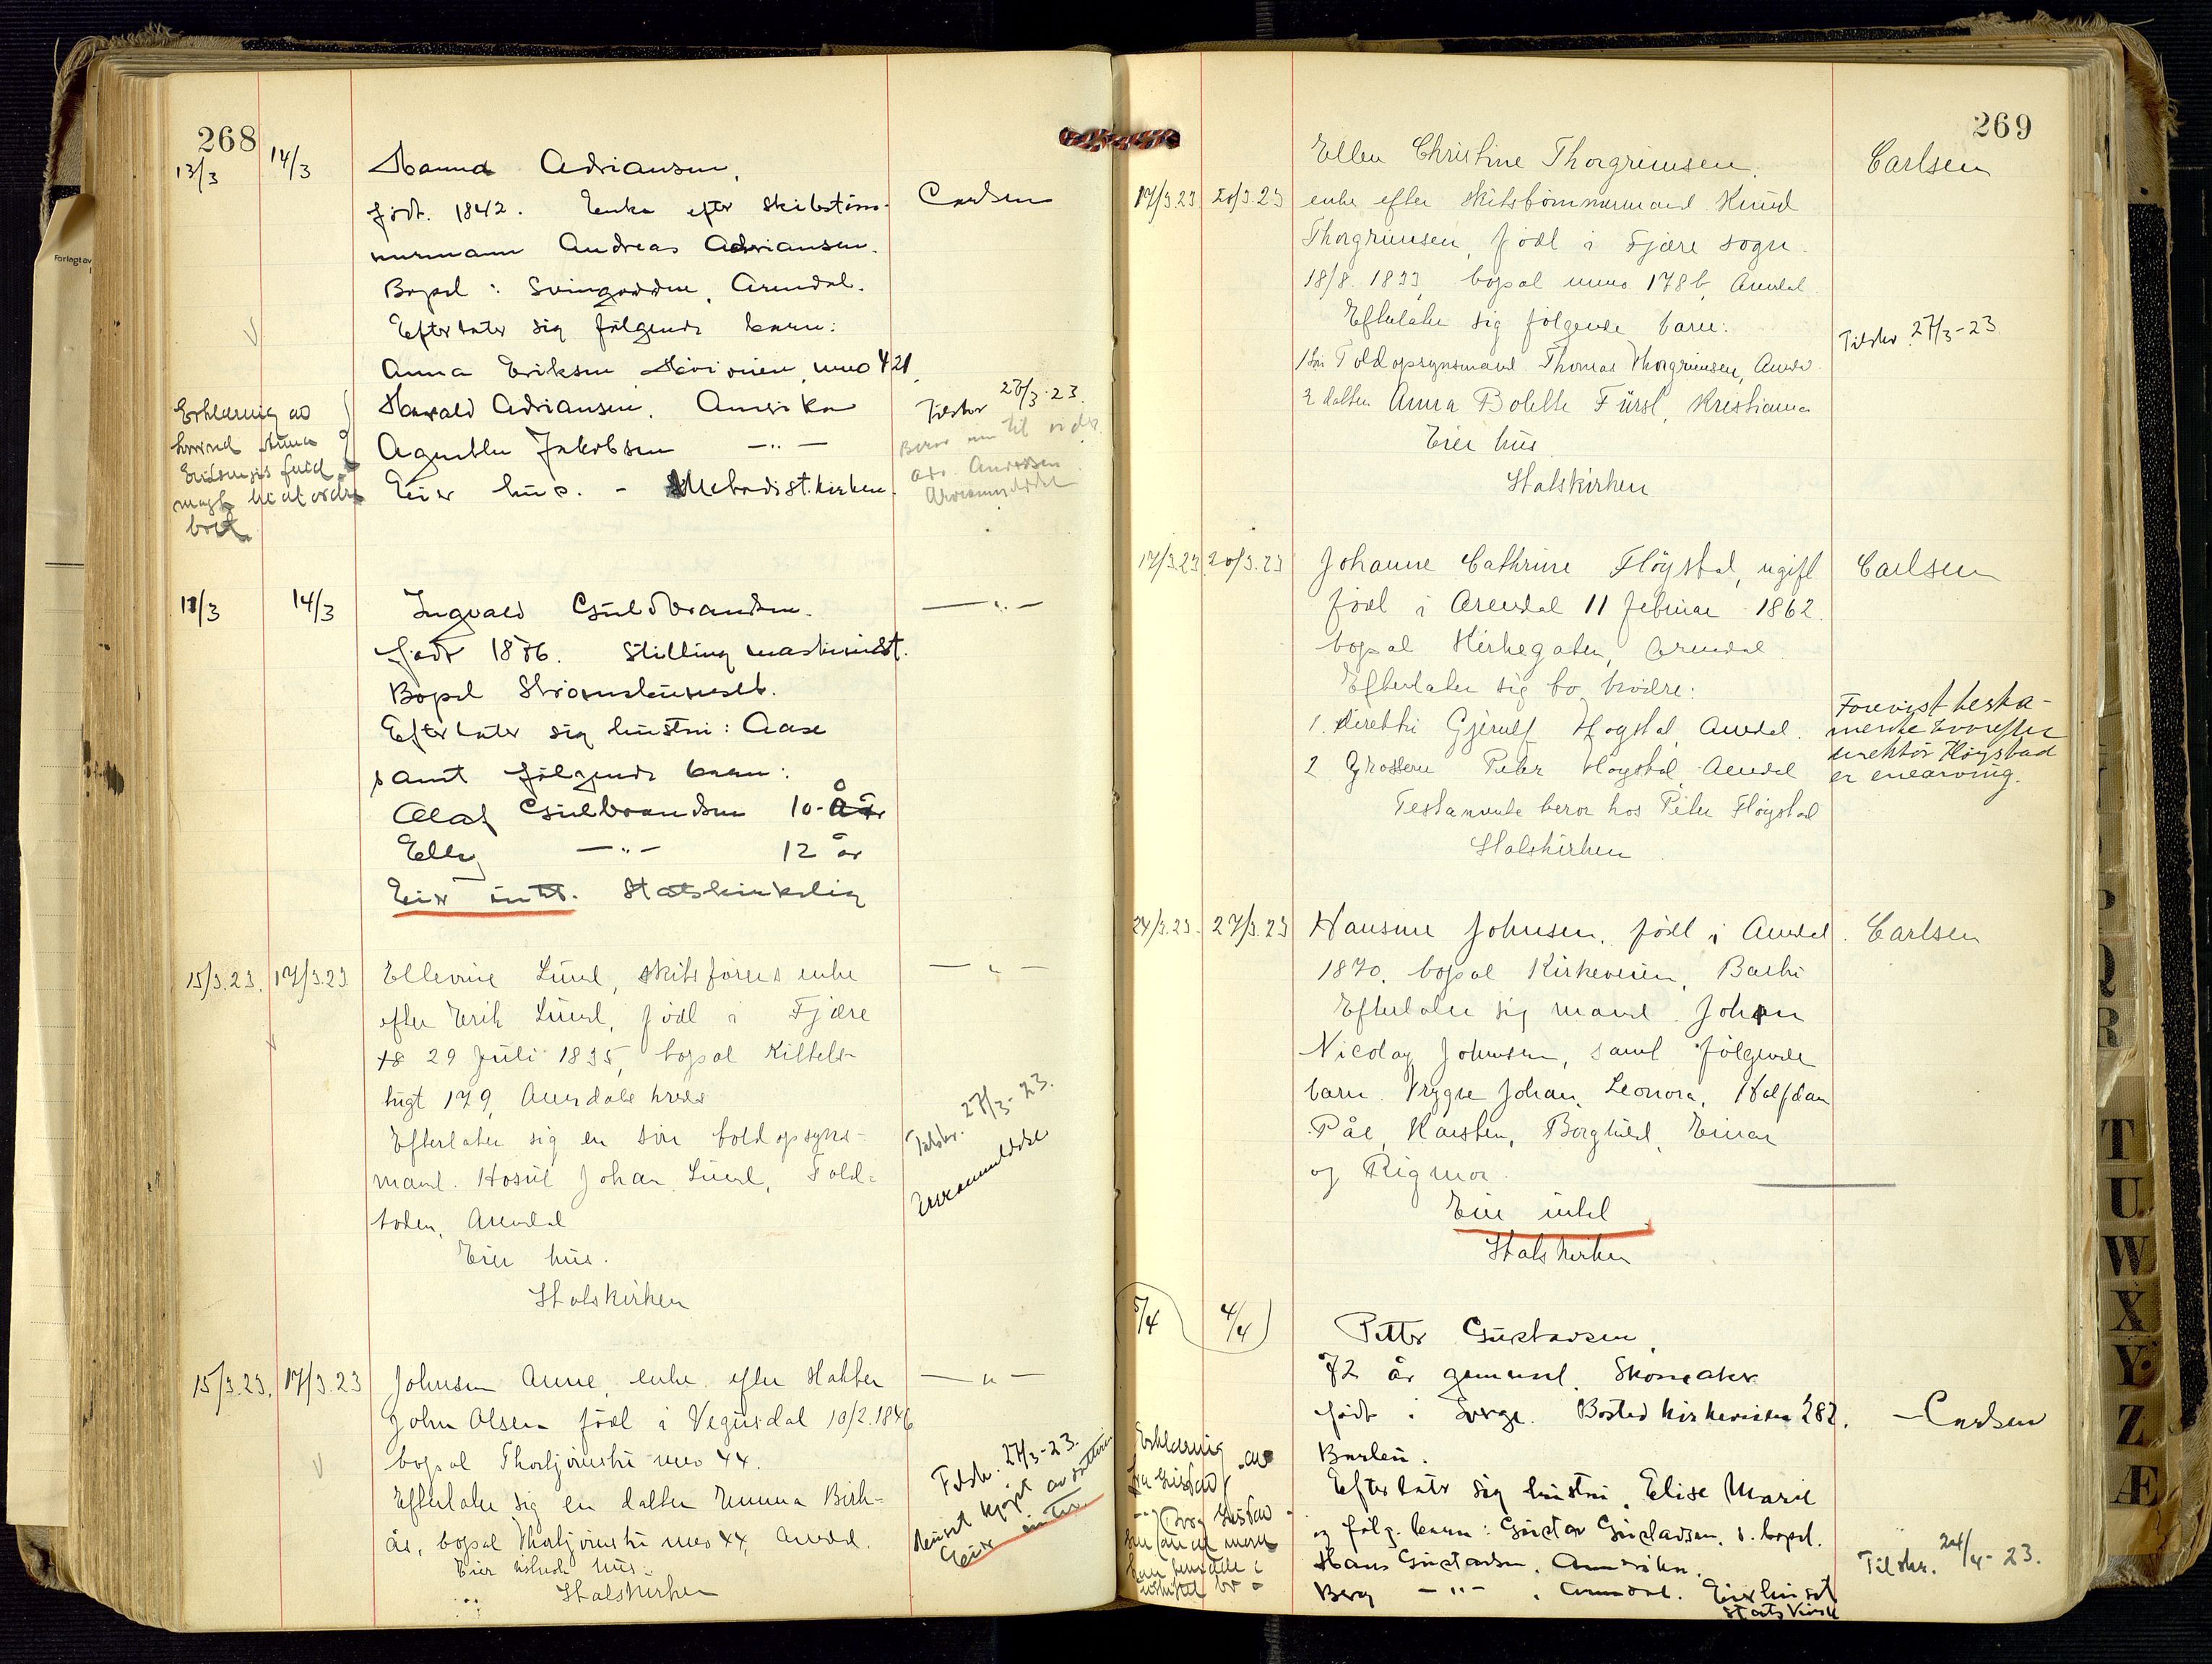 268
13/3 14/3 Hanna Adriansen,
født. 1842. Enke efter skibstøm- Carlsen
mermann Andreas Adriansen.
Bopel: Svingodden, Arendal.
Efterlater sig følgende barn:
Anna Eriksen, mno 421.
Harald Adriansen, Amerika
Agnethe Jakobsen —"—
Eier hus. - Methodist.kirken.
Erklæring av
hvorved Anna
Tilskr 20/3.23.
Beror til
bort
13/3 14/3 Ingvald Guldbrandsen. —"—
født 1876. Stilling maskinist.
Bopel Strømsbuneset.
Efterlater sig hustru: Aase
samt følgende barn:
Olaf Gulbrandsen 10 år
Elly —"— 12 år
Eier intet. Statskirkelig
15/3.23. 17/3.23 Ellevine Lund, skibsførers enke —"—
efter Erik Lund, født i Fjære
18 29 Juli 1835, bopæl Kittels-
bugt 179, Arendals kreds
Efterlater sig en søn toldopsyns-
mand. Hosul Johan Lund, Told-
boden, Arendal
Eier hus.
Statskirken
Tilskr. 27/3-23.
15/3.23. 17/3.23 Johnsen Anne, enke efter Halter —"—
John Olsen født i Vegusdal 10/2.1846
bopæl Thorbjørnsbu mno 44.
Efterlater sig en datter Emma Birk-
ås, bopæl Thorbjørnsbu mno 44, Arendal.
Eier hus.
Statskirken
Tilskr. 27/3-23.
Huset kjøpt av datteren
Eier intet
269
Ellen Christine Thorgrimsen, Carlsen
17/3.23 20/3.23 enke efter skibstømmermand Knud
Thorgrimsen, født i Fjære sogn.
18/8. 1833, bopæl mno 178b, Arendal.
Efterlater sig følgende barn:
1 søn Toldopsynsmand Thomas Thorgrimsen, Arendal.
2 datter Anna Bolette Fürst, Kristiania
Eier hus
Statskirken
Tilskr. 27/3-23
17/3.23 20/3.23 Johanne Cathrine Fløystad, ugift Carlsen
født i Arendal 11 februar 1862.
bopæl Kirkegaten, Arendal
Efterlater sig to brødre:
1. direktør Gjerulf Fløystad, Arendal.
2 Grosserer Peter Fløystad, Arendal
Testamente beror hos Peter Fløystad
Statskirken
Forevist testa-
mente hvorefter
direktør Fløystad
er enearving.
24/3.23. 27/3.23 Hansine Johnsen, født i Arendal. Carlsen
1870, bopæl Kirkeveien, Barbu
Efterlater sig mand Johan
Nicolay Johnsen, samt følgende
barn. Trygve Johan, Leonora, Halfdan
Pål, Karsten, Borghild, Einar
og Rigmor.
Eier intet
Statskirken
5/4 4/4 Petter Gustavsen,
72 år gammel. Skomaker
født i Sverge. Bosted Kirkeveien 282, —Carlsen
Barbu.
Efterlater sig hustru, Elise Marie
og følg. barn: Gustav Gustavsen, s. bopel.
Hans Gustavsen, Amerika.
Berg —"—, Arendal. Eier huset
Statskirk
Erklæring
fra Gustav
Tilskr. 24/4-23.
T
U
W
X
Y
Z
Æ